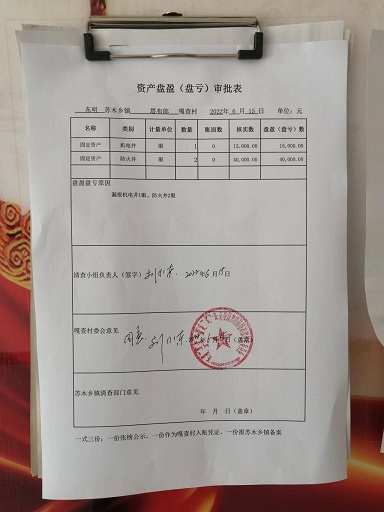 资产盘盈（盘亏）审批表
东明 苏木乡镇 塔布郎 嘎查村 2022年 6 月 15 日 单位：元
名称 类别 计量单位 数量 账面数 核实数 盘盈（盘亏）数
固定资产 机电井 眼 1 0 15,000.00 15,000.00
固定资产 防火井 眼 2 0 40,000.00 40,000.00
盘盈盘亏原因
漏报机电井1眼、防火井2眼
清查小组负责人（签字） 2022年6月15日
嘎查村委会意见
同意 （盖章）
苏木乡镇清查部门意见
年 月 日（盖章）
一式三份：一份张榜公示，一份作为嘎查村入账凭证，一份报苏木乡镇备案